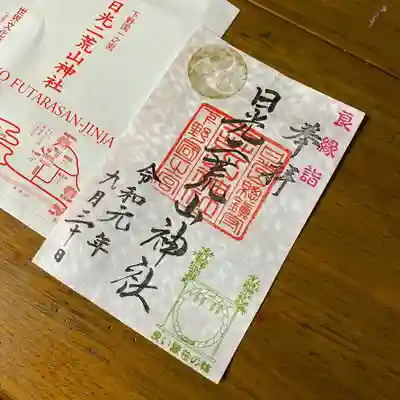 下野国一之宮
日光二荒山神社
世界文化
O FUTARASAN-JINJA
良縁詣
奉拝
日光二荒山神社
令和元年
九月二十日